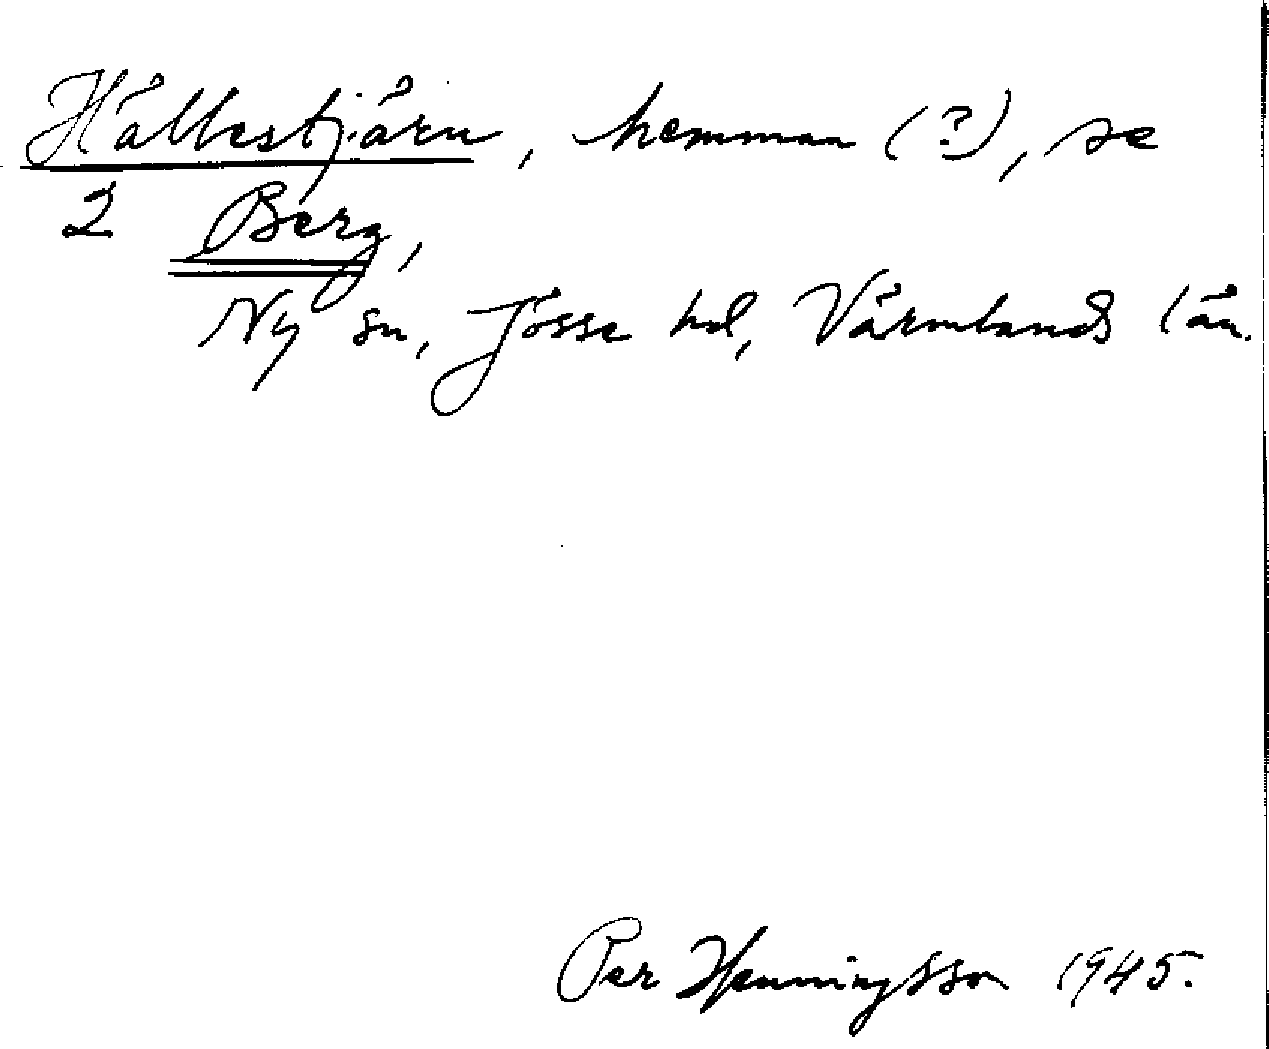 Hällestjärn, hemman (?), se
2 Berg,
Ny sn, Jösse hd, Värmlands län.
Per Henningsson 1945.